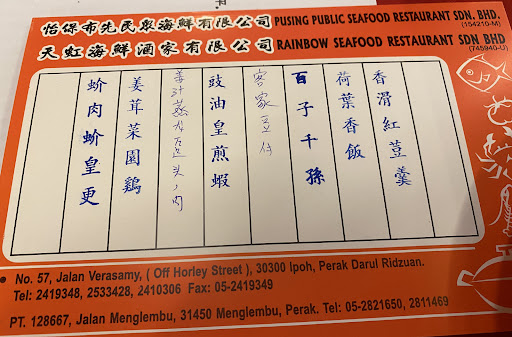 怡保布先民眾海鮮有限公司 PUSING PUBLIC SEAFOOD RESTAURANT SDN. BHD.
(154210-M)
天虹海鮮酒家有限公司 RAINBOW SEAFOOD RESTAURANT SDN BHD
(745940-U)
蚧肉蚧皇更
姜茸菜園鷄
姜汁蒸龙趸头,肉
豉油皇煎蝦
客家豆付
百子千孫
荷葉香飯
香滑紅荳羹
No. 57, Jalan Verasamy, ( Off Horley Street ), 30300 Ipoh, Perak Darul Ridzuan.
Tel: 2419348, 2533428, 2410306 Fax: 05-2419349
PT. 128667, Jalan Menglembu, 31450 Menglembu, Perak. Tel: 05-2821650, 2811469